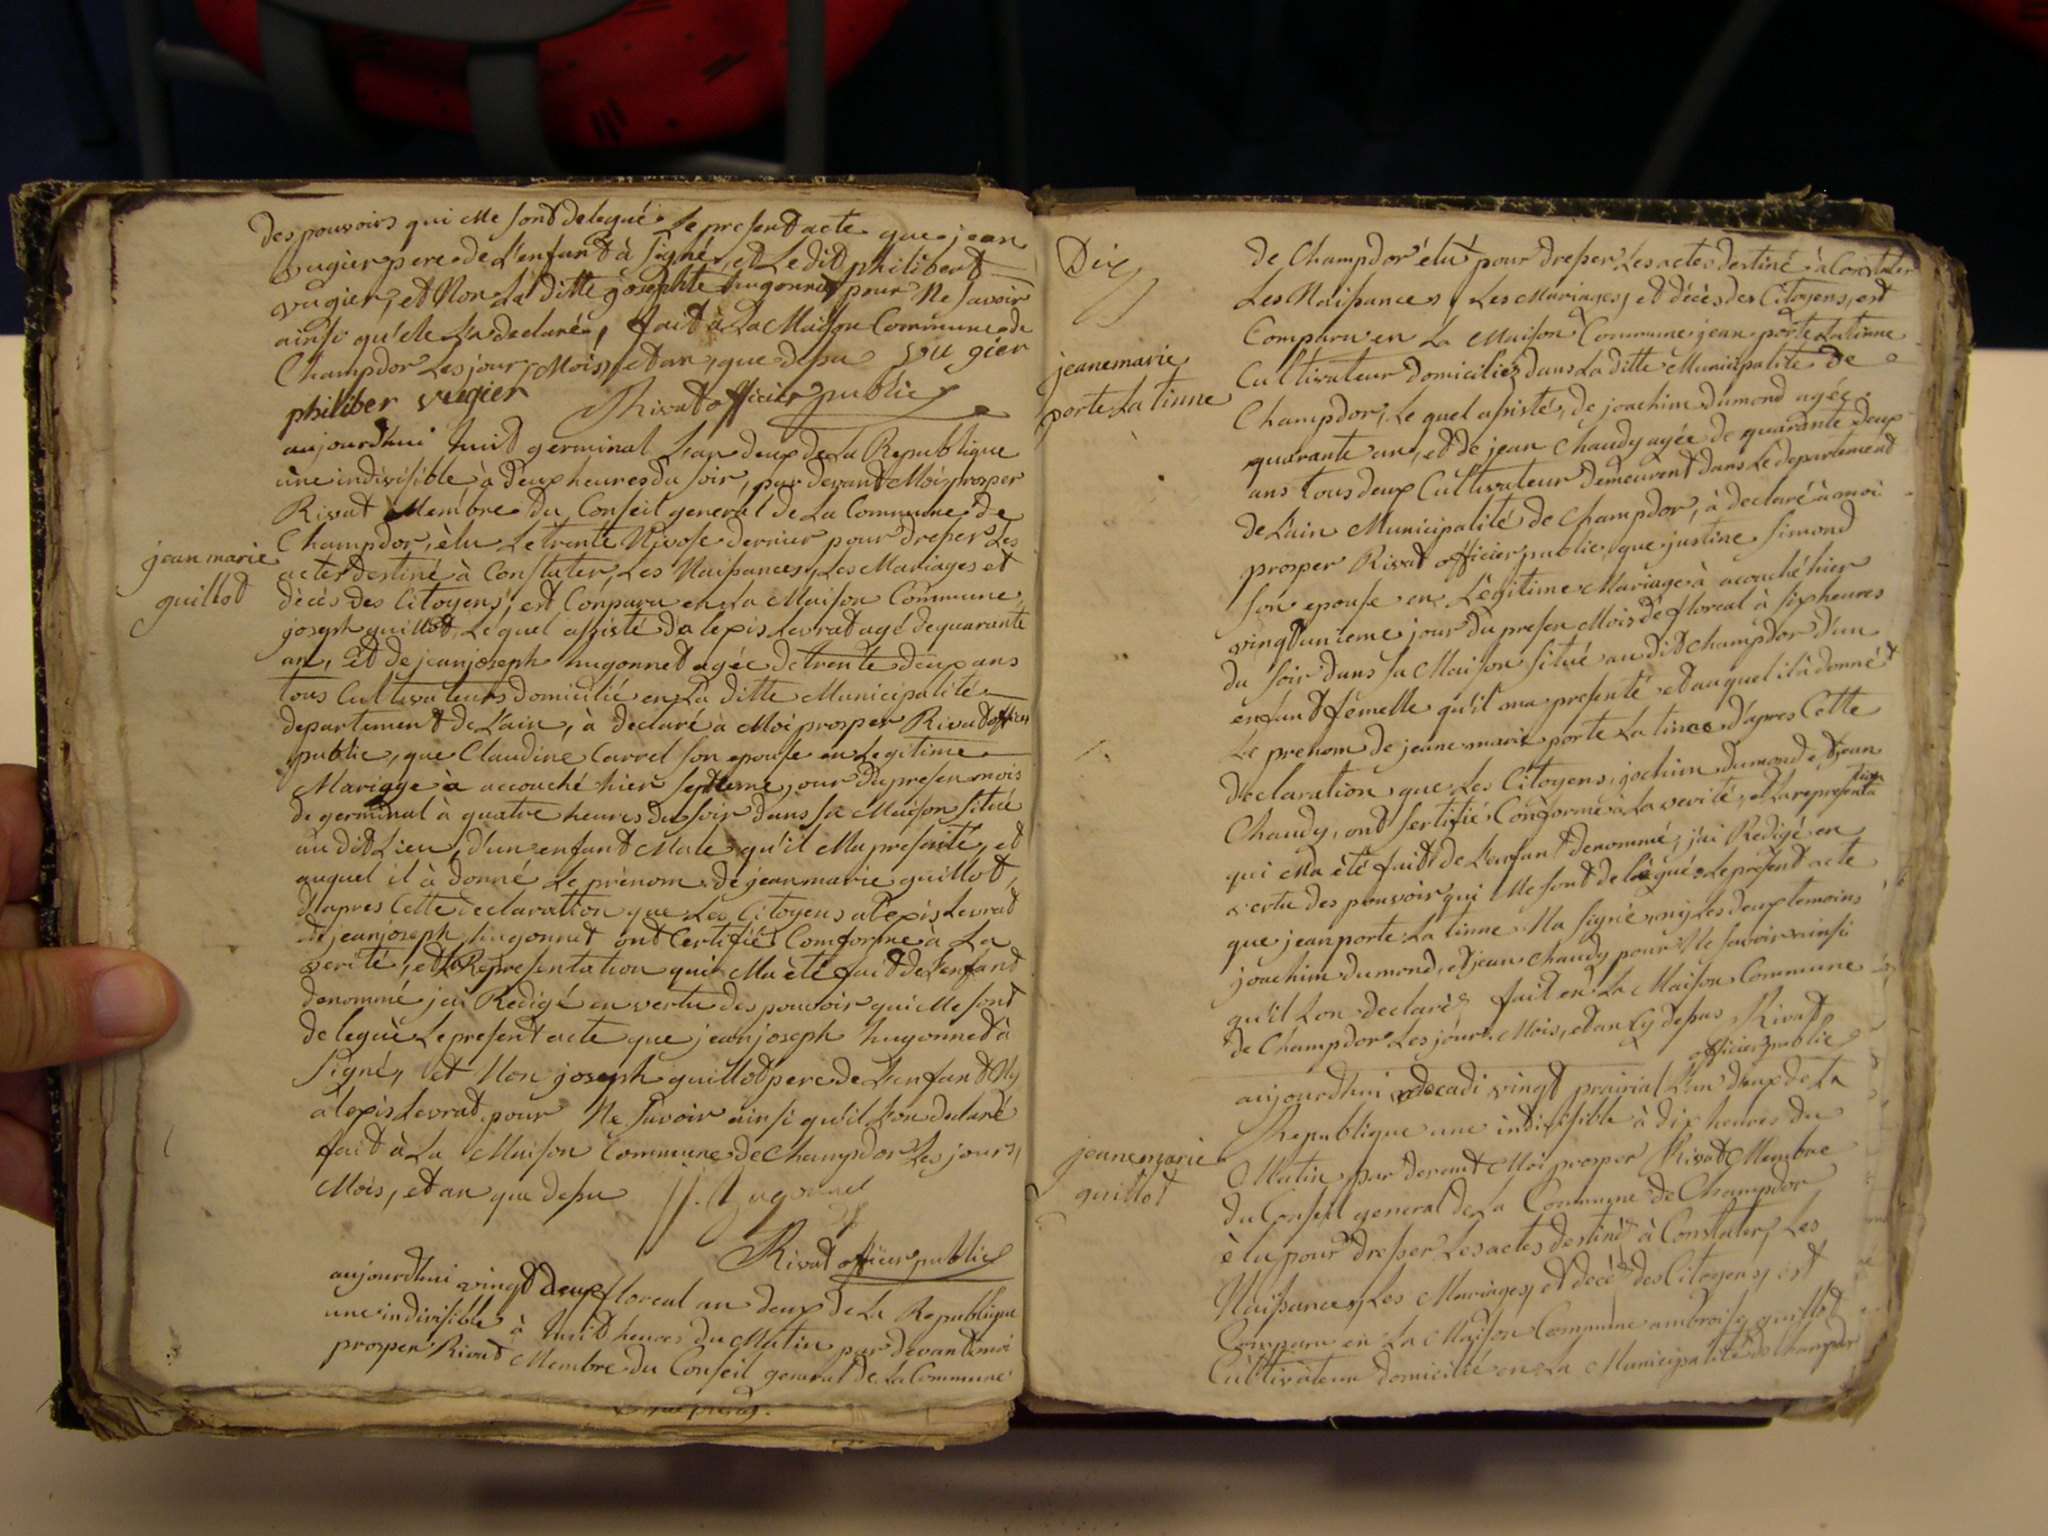 des pouvoirs qui me sont delegué. Le present acte que jean
vugier pere de L'enfant à signé, et Le dit philibert
vugier, et Non La ditte josephte hugonnet pour Ne savoir
ainsi qu'elle La declaré, fait à La Maison Commune de
Champdor Les jour, Mois, et an, que desu vu gier
philiber vugier Rivat officier public
aujourdhui huit germinal L'an deux de La Republique
ùne indivisible à deux heures du soir, par devant Moi prosper
Rivat Membre du Conseil general de La Commune de
Champdor, èlu Le trente Nivose dernier pour dresser Les
jean marie
guillot
actes destiné à Constater, Les Naissances, Les Mariages et
dècès des Citoyens, est Conparu en La Maison Commune
joseph guillot, Le quel assisté d'alepis Levrat agé de quarante
an, Et de jeanjoseph hugonnet agée de trente deux ans
tous Cultivateurs domicilié en La ditte Municipalité
departement de L'ain, à declaré à Moi prosper Rivat officier
public, que Claudine Carrel son epouse en Legitime
Mariage à accouché hier septieme jour du presen mois
de germinal à quatre heures du soir dans sa Maison situé
au dit Lieu, d'un enfant Male qu'il Ma presenté, et
auquel il à donné Le prènom de jeanmarie guillot,
d'apres Cette declaration que Les Citoyens alepis Levrat
et jeanjoseph hugonnet ont Certifié Comforme à La
verité, et la Representation qui Ma èté fait de L'enfant
denommé jai Redigé en vertu des pouvoir qui Me sont
deleguè Le present acte que jeanjoseph hugonnet à
signé, et Non joseph guillot pere de L'enfant Ny
alepis Levrat pour Ne savoir ainsi qu'il L'on declaré
fait à La Maison Commune de Champdor Les jours,
Mois, et an que desu jj. hugonnet
Rivat officier public
aujourdhui vingt deux floreal an deux de La Republique
une indivisible à huit heures du Matin par devant moi
prosper Rivat Membre du Conseil general de La Commune
Dix
de Champdor élu pour dresser Les actes destiné à Constater
Les Naissances, Les Mariages, et décès des Citoyens, est
Comparu en La Maison Commune jean porte La tinne
jeanemarie
porte La tinne
Cultivateur domiciliez dans La ditte Municipalité de
Champdor, Le quel assistés, de joachim dumond agée
quarante an, et de jean Chaudy agée de quarante deux
ans tous deux Cultivateur demeurent dans Le departement
de L'ain Municipalité de Champdor, à declaré à moi
prosper Rivat officier public, que justine simond
son epouse en Lègitime Mariage à acouché hier
vingt unieme jour du presen Mois de floreal à six heures
du soir dans sa Maison situé au dit Champdor d'un
enfant femelle qu'il ma presenté et auquel il à donné
Le prenom de jeane marie porte La tinne d'apres Cette
declaration que Les Citoyens, jochim dumond, et jean
Chaudy, ont sertifié Conforme à La verité, et La representa tion
qui Ma été fait de L'enfant denommé, j'ai Redigé en
vertu des pouvoir qui Me sont delegué Le present acte
que jean porte La tinne Na signé, ny Les deux temoins
joachim dumond, et jean Chaudy pour Ne savoir ainsi
qu'il L'on declaré, fait en La Maison Commune
de Champdor Les jour, Mois, et an Cy desus Rivat
officier public
aujourdhui decadi vingt prairial L'an deux de La
Republique une indivisible à dix heures du
jeanemarie
guillot
Matin par devant Moi prosper Rivat Membre
du Conseil general de La Commune de Champdor
èlu pour dresser Les actes destiné à Constater, Les
Naissances, Les Mariages, et decé des Citoyens, est
Comparu en La Maison Commune ambroise guillot
Cultivateur domicilié en La Municipalité de Champdor